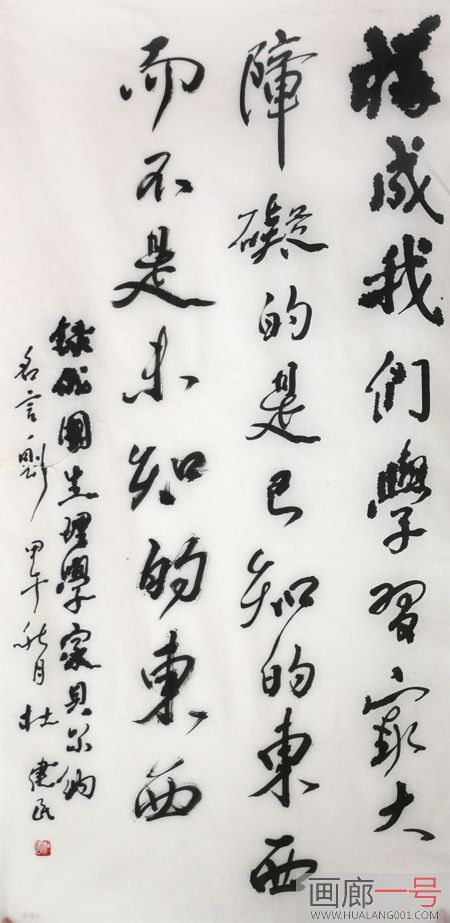 構成我們學習最大
障礙的是已知的東西
而不是未知的東西
錄法國生理學家貝尔納
名言一則 甲午秋月 杜 民
画廊一号
WWW.HUALANG001.COM